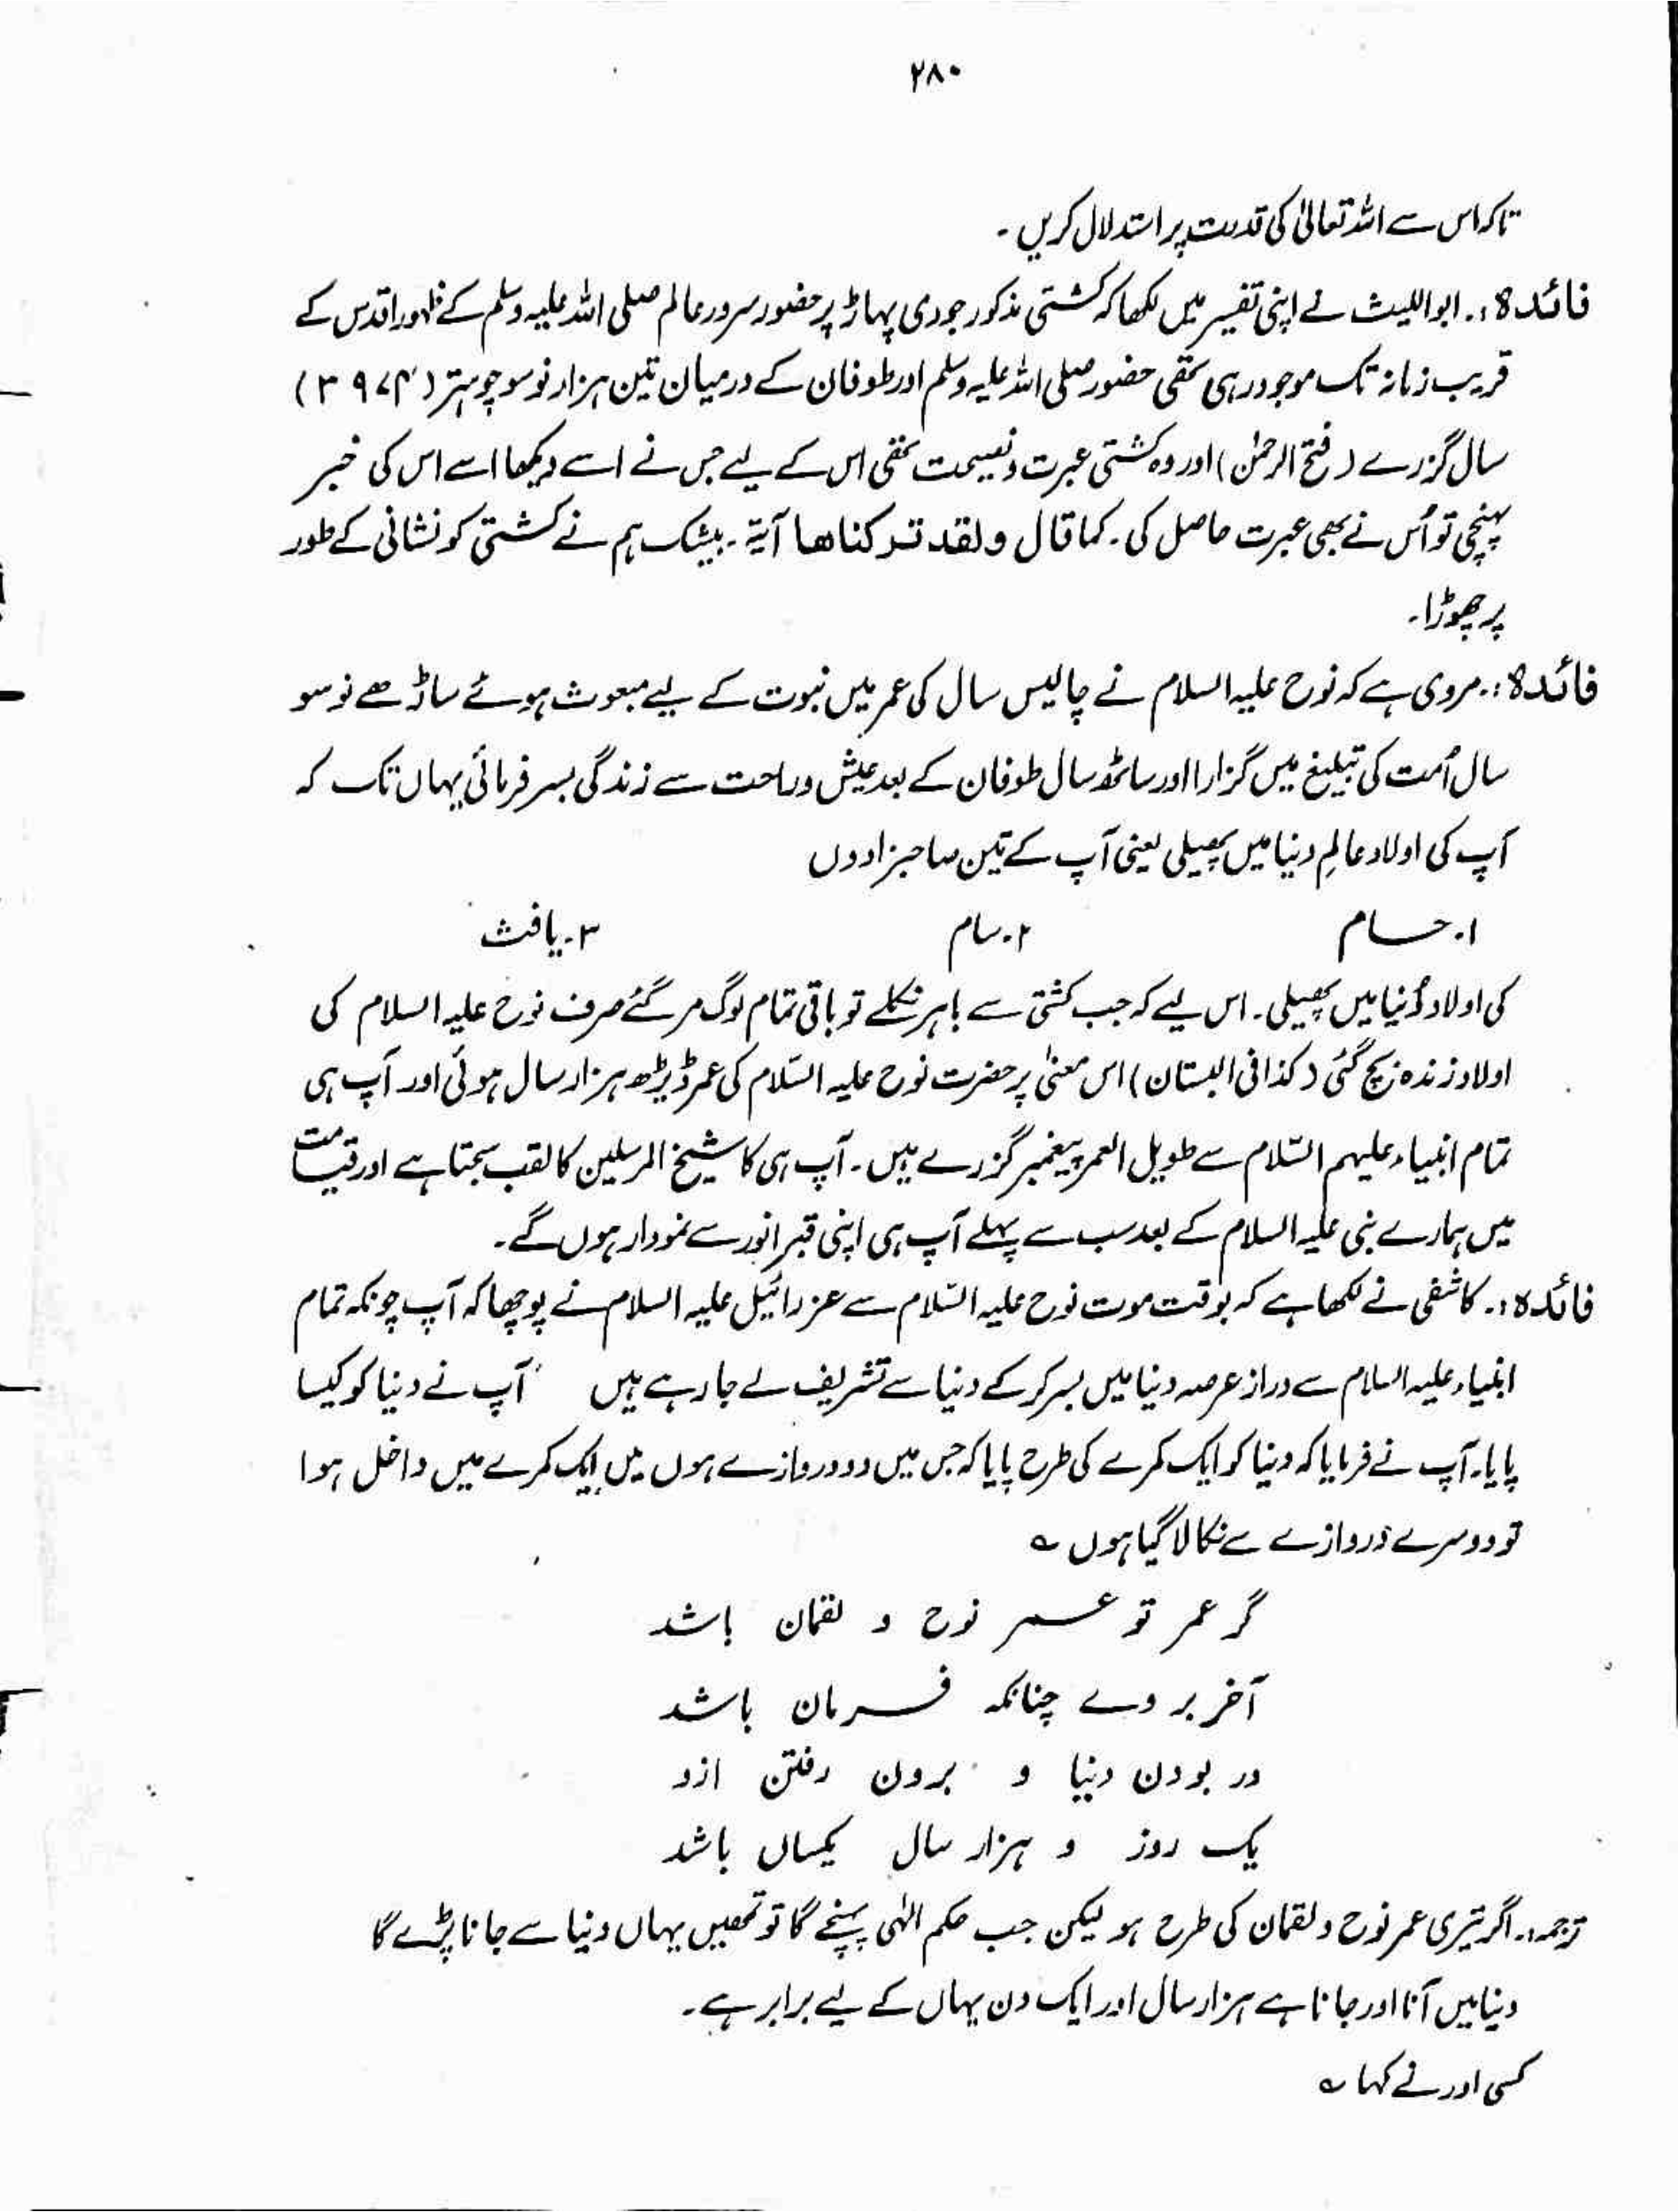 ۲۸۰
تاکہ اس سے اللہ تعالیٰ کی قدرت پر استدلال کریں۔
فائدہ:۔ ابواللیث نے اپنی تفسیر میں لکھا کہ کشتی مذکور جودی پہاڑ پر حضور سرور عالم صلی اللہ علیہ وسلم کے ظہور اقدس کے
قریب زمانہ تک موجود رہی تھی حضور صلی اللہ علیہ وسلم اور طوفان کے درمیان تین ہزار نو سو چوہتر (۳۹۷۴)
سال گزرے (فتح الرحمٰن) اور وہ کشتی عبرت و نصیحت تھی اس کے لیے جس نے اسے دیکھا اسے اس کی خبر
پہنچی تو اُس نے بھی عبرت حاصل کی۔ کما قال ولقد ترکناھا آیۃ۔ بیشک ہم نے کشتی کو نشانی کے طور
پر چھوڑا۔
فائدہ:۔ مروی ہے کہ نوح علیہ السلام نے چالیس سال کی عمر میں نبوت کے لیے مبعوث ہوئے ساڑھے نو سو
سال اُمت کی تبلیغ میں گزارا اور ساٹھ سال طوفان کے بعد عیش و راحت سے زندگی بسر فرمائی یہاں تک کہ
آپ کی اولاد عالمِ دنیا میں پھیلی یعنی آپ کے تین صاحبزادوں
۱۔ حام ۲۔ سام ۳۔ یافث
کی اولاد دُنیا میں پھیلی۔ اس لیے کہ جب کشتی سے باہر نکلے تو باقی تمام لوگ مر گئے صرف نوح علیہ السلام کی
اولاد زندہ بچ گئی (کذا فی البستان) اس معنیٰ پر حضرت نوح علیہ السّلام کی عمر ڈیڑھ ہزار سال ہوئی اور آپ ہی
تمام انبیاء علیہم السّلام سے طویل العمر پیغمبر گزرے ہیں۔ آپ ہی کا شیخ المرسلین کا لقب سجتا ہے اور قیامت
میں ہمارے نبی علیہ السلام کے بعد سب سے پہلے آپ ہی اپنی قبر انور سے نمودار ہوں گے۔
فائدہ:۔ کاشفی نے لکھا ہے کہ بوقت موت نوح علیہ السّلام سے عزرائیل علیہ السلام نے پوچھا کہ آپ چونکہ تمام
انبیاء علیہ السلام سے دراز عرصہ دنیا میں بسر کر کے دنیا سے تشریف لے جا رہے ہیں آپ نے دنیا کو کیسا
پایا۔ آپ نے فرمایا کہ دنیا کو ایک کمرے کی طرح پایا کہ جس میں دو دروازے ہوں میں ایک کمرے میں داخل ہوا
تو دوسرے دروازے سے نکالا گیا ہوں ؎
گر عمر تو عمر نوح و لقمان باشد
آخر بروے چنانکہ فرمان باشد
در بودن دنیا و برون رفتن ازو
یک روز و ہزار سال یکساں باشد
ترجمہ:۔ اگر تیری عمر نوح و لقمان کی طرح ہو لیکن جب حکم الٰہی پہنچے گا تو تمھیں یہاں دنیا سے جانا پڑے گا
دنیا میں آنا اور جانا ہے ہزار سال اور ایک دن یہاں کے لیے برابر ہے۔
کسی اور نے کہا ؎